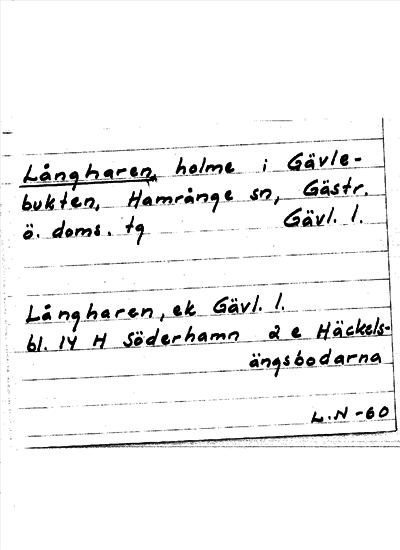 Långharen, holme i Gävle-
bukten, Hamrånge sn, Gästr.
ö. doms. tg Gävl. l.
Långharen, ek Gävl. l.
bl. 14 H Söderhamn 2 e Häckels-
ängsbodarna
L.N-60